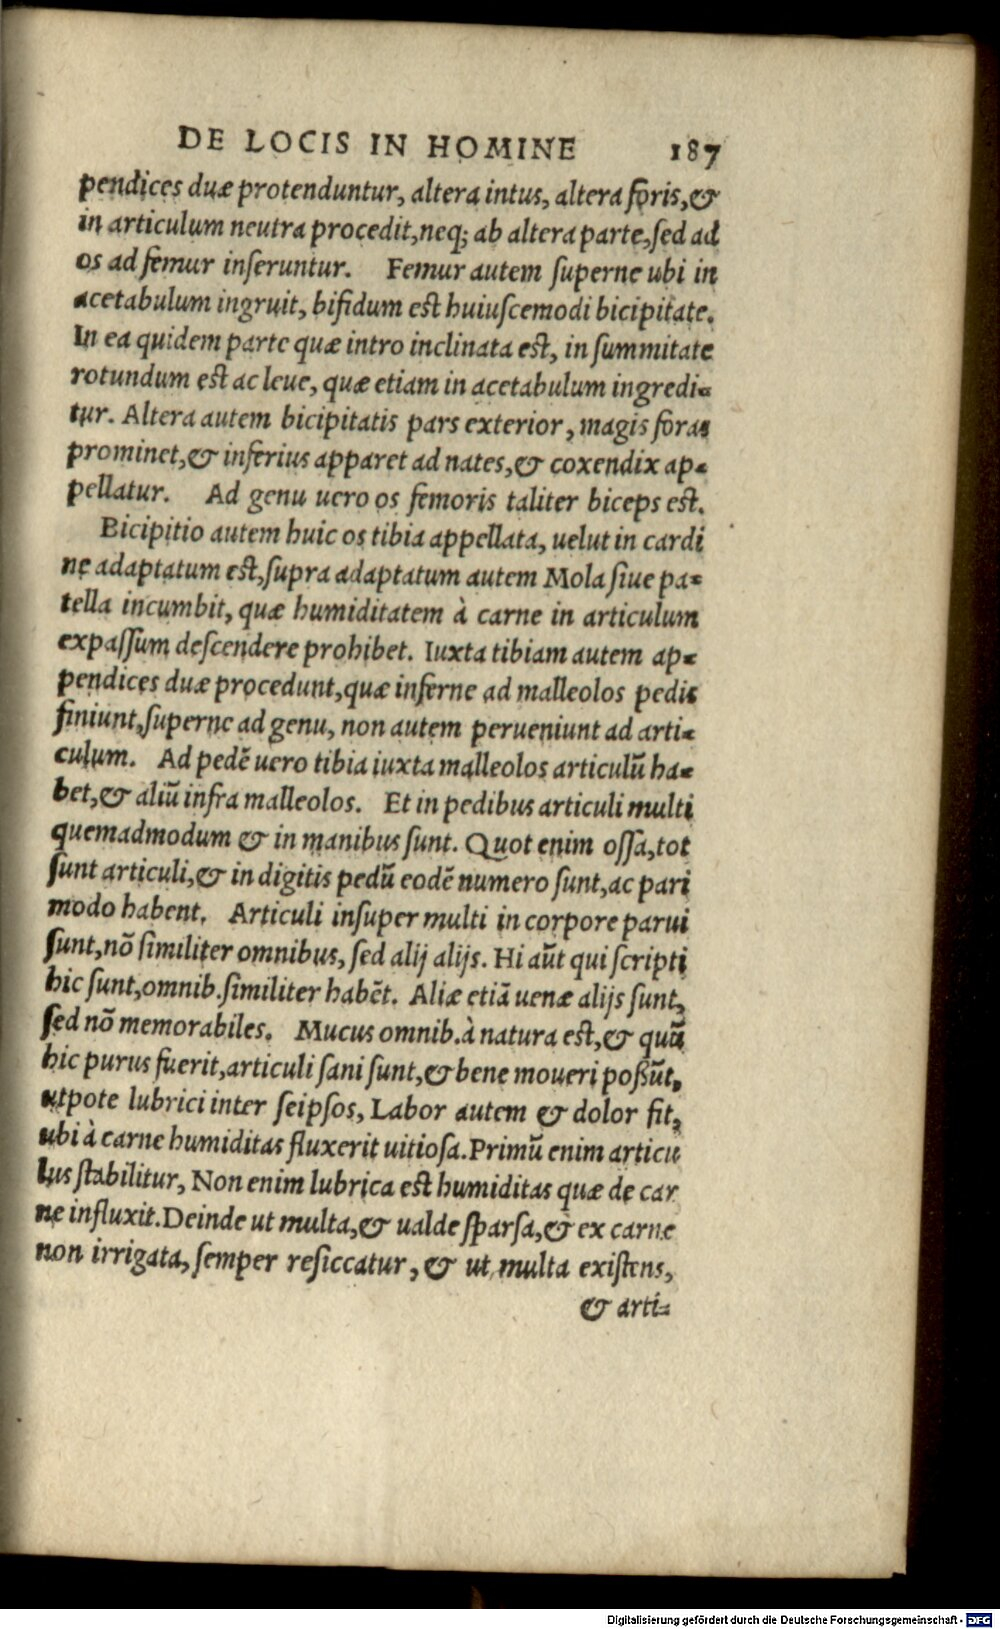 DE LOCIS IN HOMINE 187
pendices duæ protenduntur, altera intus, altera foris, &
in articulum neutra procedit, neq; ab altera parte, sed ad
os ad femur inseruntur. Femur autem superne ubi in
acetabulum ingruit, bifidum est huiuscemodi bicipitate.
In ea quidem parte quæ intro inclinata est, in summitate
rotundum est ac leue, quæ etiam in acetabulum ingredi-
tur. Altera autem bicipitatis pars exterior, magis foras
prominet, & inferius apparet ad nates, & coxendix ap-
pellatur. Ad genu uero os femoris taliter biceps est.
Bicipitio autem huic os tibia appellata, uelut in cardi
ne adaptatum est, supra adaptatum autem Mola siue pa-
tella incumbit, quæ humiditatem à carne in articulum
expassum descendere prohibet. Iuxta tibiam autem ap-
pendices duæ procedunt, quæ inferne ad malleolos pedis
finiunt, superne ad genu, non autem perueniunt ad arti-
culum. Ad pedẽ uero tibia iuxta malleolos articulũ ha-
bet, & aliũ infra malleolos. Et in pedibus articuli multi
quemadmodum & in manibus sunt. Quot enim ossa, tot
sunt articuli, & in digitis pedũ eodẽ numero sunt, ac pari
modo habent. Articuli insuper multi in corpore parui
sunt, nõ similiter omnibus, sed alij alijs. Hi aũt qui scripti
hic sunt, omnib. similiter habẽt. Aliæ etiã uenæ alijs sunt,
sed nõ memorabiles. Mucus omnib. à natura est, & quũ
hic purus fuerit, articuli sani sunt, & bene moueri possũt,
utpote lubrici inter seipsos, Labor autem & dolor fit,
ubi à carne humiditas fluxerit uitiosa. Primũ enim articu
lus stabilitur, Non enim lubrica est humiditas quæ de car
ne influxit. Deinde ut multa, & ualde sparsa, & ex carne
non irrigata, semper resiccatur, & ut multa existens,
& arti-
Digitalisierung gefördert durch die Deutsche Forschungsgemeinschaft - DFG